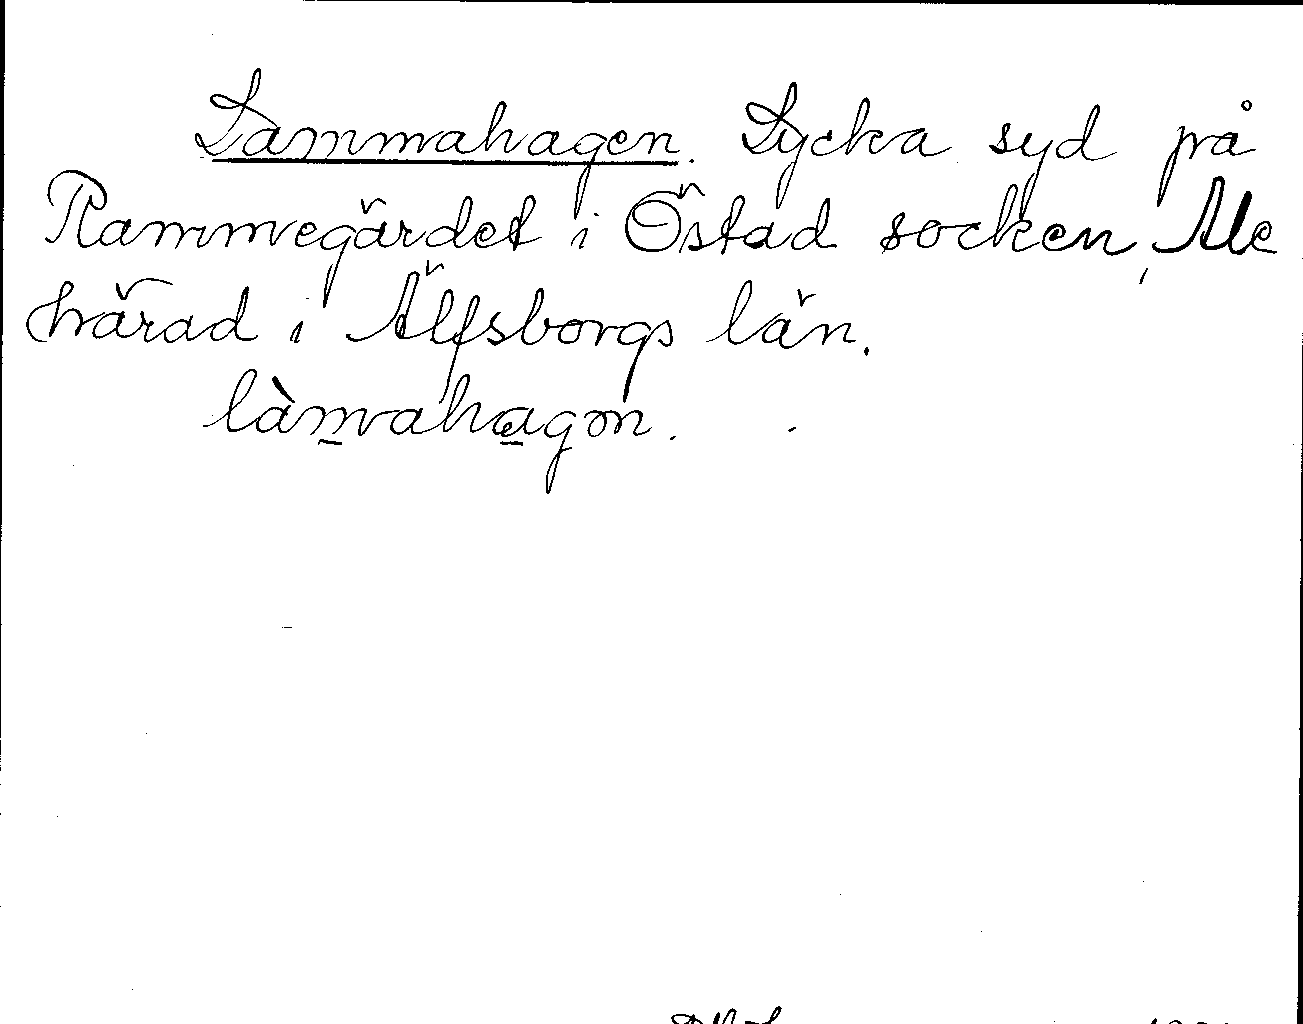 Lammahagen. Lycka syd på
Rammegärdet i Östad socken, Ale
härad i Älfsborgs län.
làm̲aha̲gən.